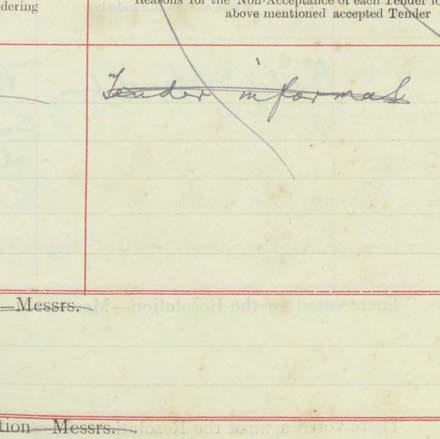 dering
Reasons for the Non-Acceptance of each Tender
above mentioned accepted Tender
Tender informal
—Messrs.
tion—Messrs.